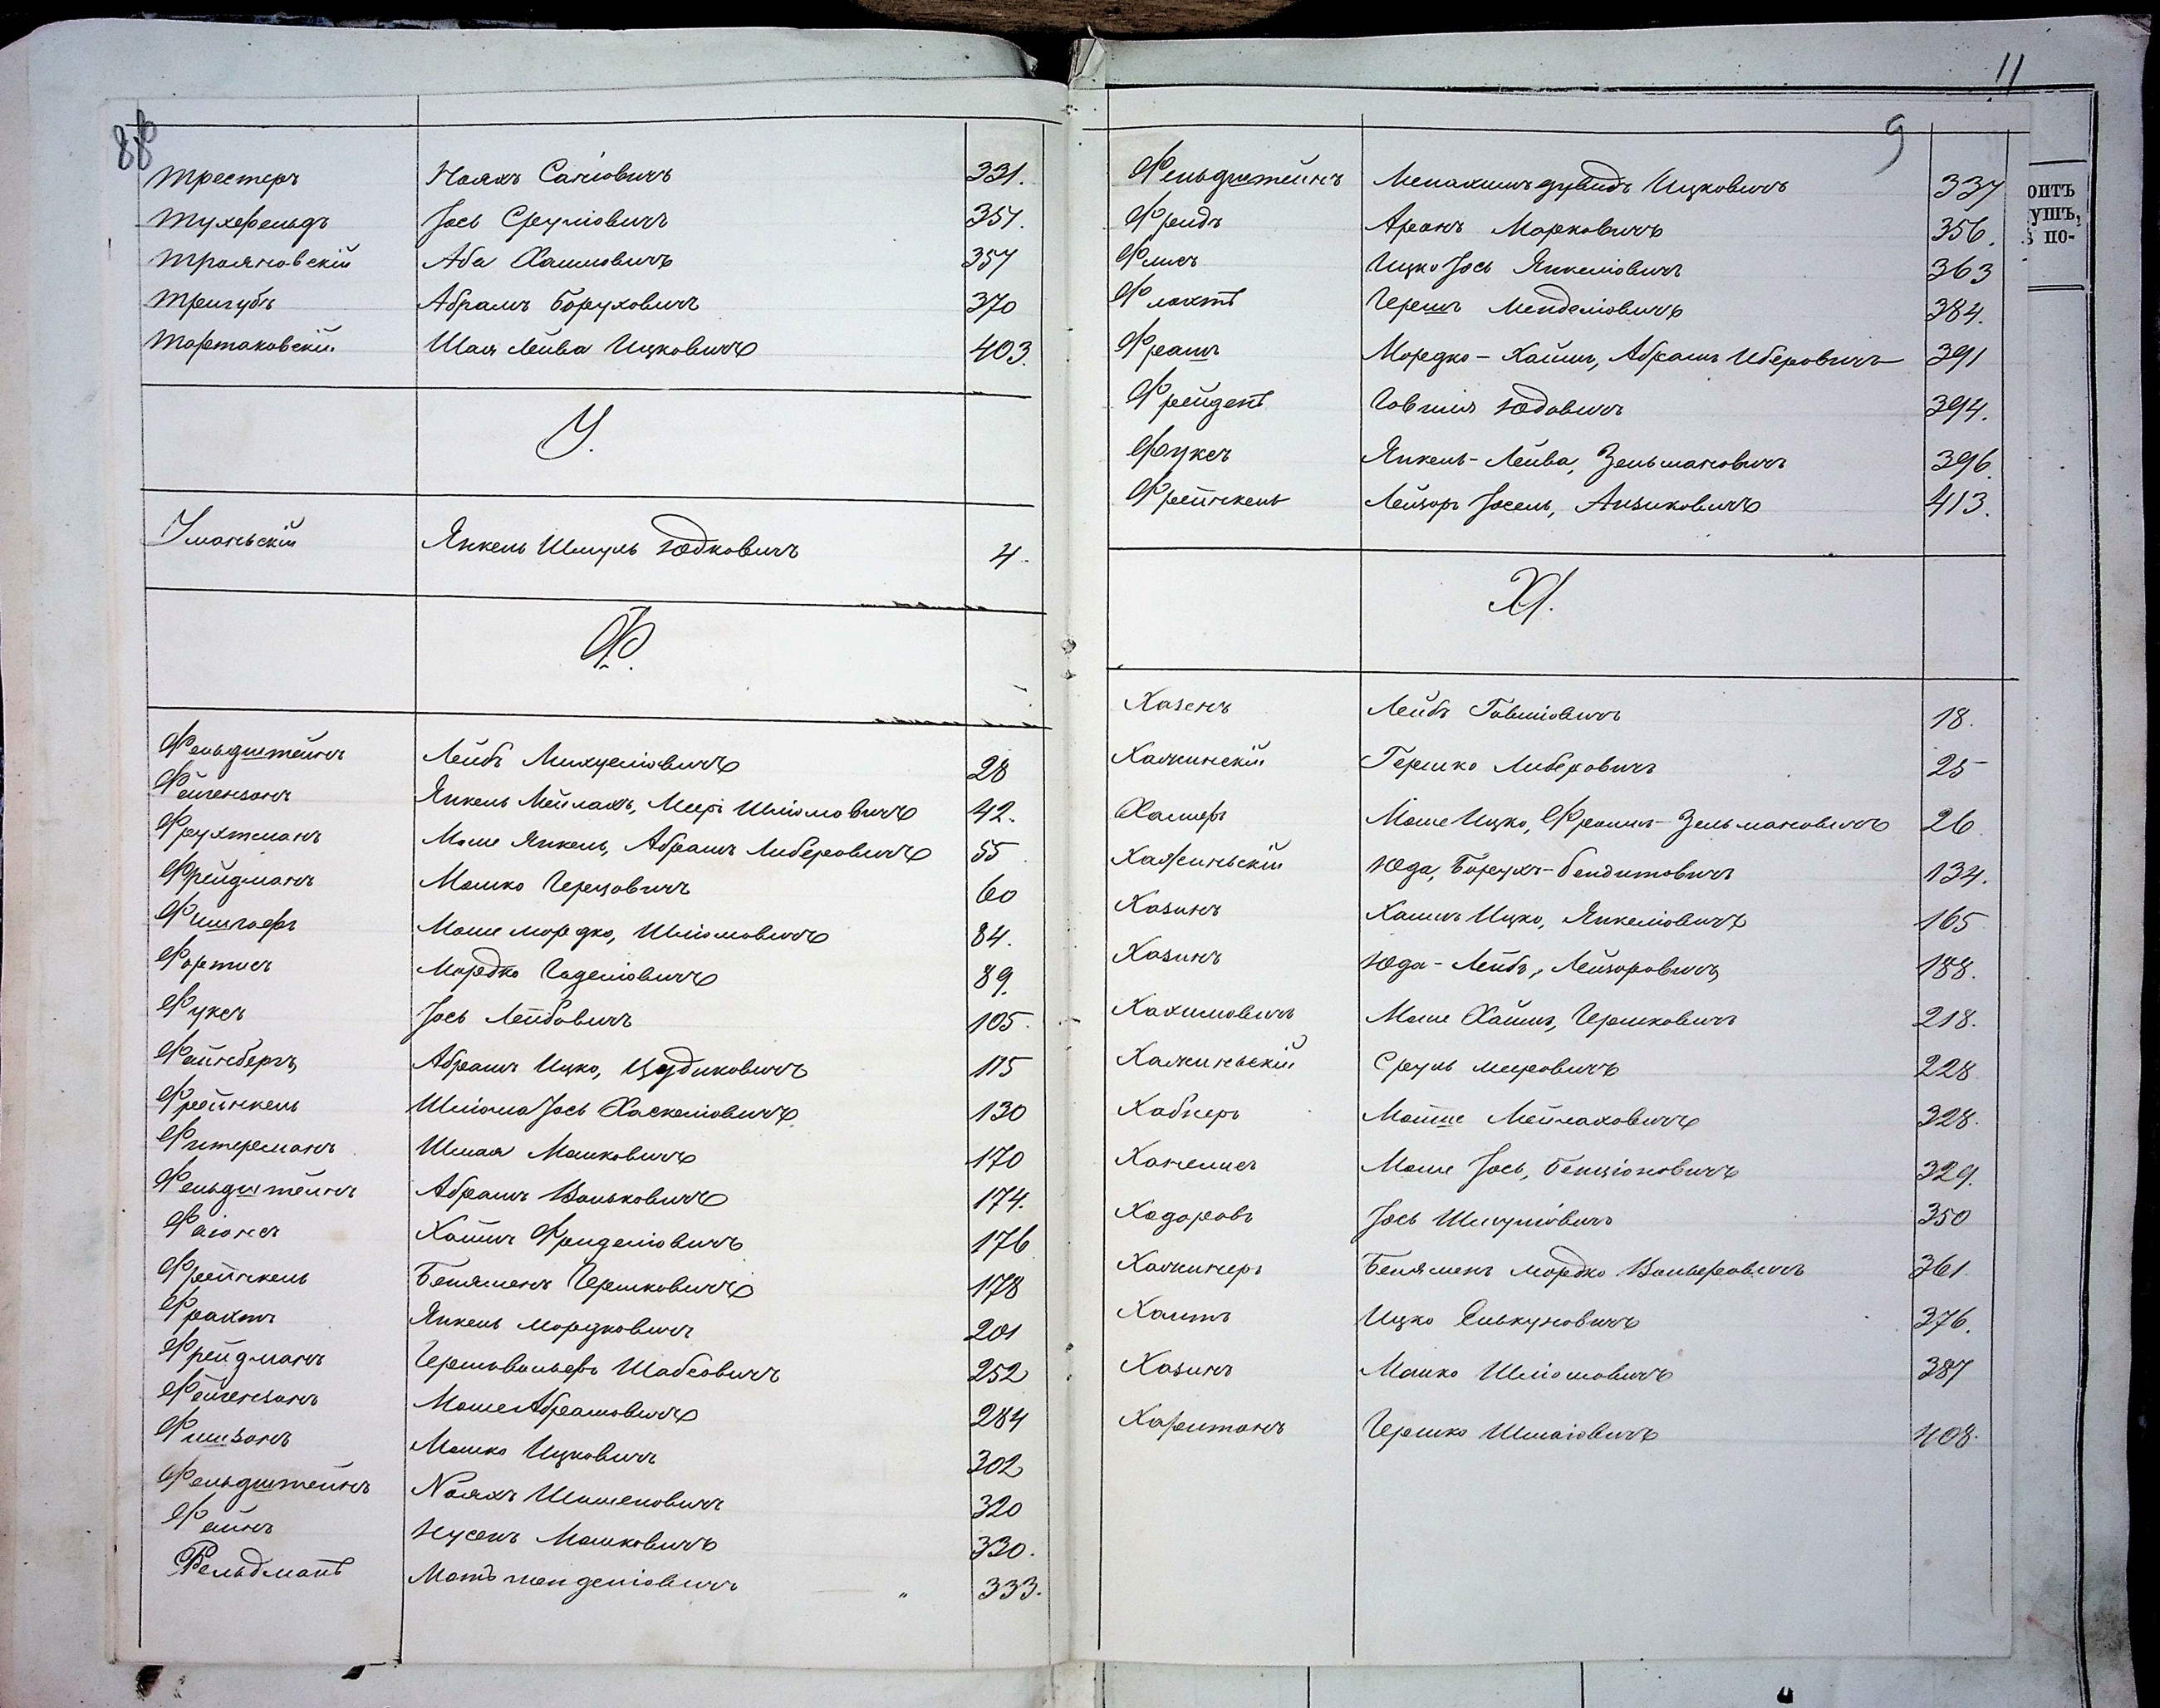 88
Трестеръ Нояхъ Саніовичъ 331.
Тухфельдъ Іось Сруліовичъ 351.
Трояновскій Аба Хаимовичъ 357
Тригубъ Абрамъ Боруховичъ 370
Тартаковскій Шая Лейва Ицковичъ 403.
У.
Уманьскій Янкель Шмуль Юдковичъ 4.
Ф.
Фельдштейнъ Лейбъ Михуеліовичъ 28
Фейгензонъ Янкель Мейлахъ, Меръ Шліомовичъ 42.
Фрухтманъ Моше Янкель, Абрамъ Либеровичъ 55
Фрейдманъ Мошко Герцовичъ 60
Фишгоефъ Моше мордко, Шліомовичъ 84.
Фортисъ Мордко Гаделіовичъ 89.
Фуксъ Іось Лейбовичъ 105.
Файнбергъ Абрамъ Ицко, Цудиковичъ 115
Фрейнкель Шліома Іось Хаскеліовичъ 130
Фитерманъ Шмая Мошковичъ 170
Фельдштейнъ Абрамъ Вольковичъ 174.
Фаіонсъ Хаимъ Фриделіовичъ 176
Фрейнкель Беняменъ Гершковичъ 178
Фрахтъ Янкель мордковичъ 201
Фрейдманъ Гершъ вольфъ Шабсовичъ 252
Фейгензонъ Моше Абрамовичъ 284
Фишзонъ Мошко Ицковичъ 302
Фельдштейнъ Nояхъ Шименовичъ 320
Фаинъ Нусенъ Мошковичъ 330.
Фельдманъ Мотъ менделіовичъ " 333.
11
9
Фельдштейнъ Менахимъ дувидъ Ицковичъ 337
Фридъ Аронъ Марковичъ 356.
Фишъ Ицко Іось Янкеліовичъ 363
Флахтъ Гершъ Менделіовичъ 384.
Фраимъ Мордко-Хаимъ, Абрамъ Иберовичъ 391
Фрейдентъ Говшія Юдовичъ 394.
Фуксъ Янкель-Лейва, Зельмановичъ 396
Фрейнкель Лейзоръ Іосель, Аизиковичъ 413.
оитъ
ушъ,
ѣ по-
Х.
Хазенъ Лейбъ Говшіовичъ 18.
Хажинскій Гершко Либеровичъ 25
Хаимефъ Моше Ицко, Фроимъ-Зельмановичъ 26
Хажиньскій Юда, Борухъ-бендитовичъ 134.
Хазинъ Хаимъ Ицко, Янкеліовичъ 165
Хазинъ Юда-Лейбъ, Лейзоровичъ 188.
Хахимовичъ Моше Хаимъ, Гершковичъ 218.
Хажиньскій Сруль меровичъ 228
Хабнеръ Мойше Мейлаховичъ 328.
Ханелисъ Моше Іось, Бенціоновичъ 329.
Хадоровъ Іось Шмуліовичъ 350
Хажинеръ Беняменъ мордко Вольфовичъ 361
Хаитъ Ицко Елькуновичъ 376.
Хазинъ Мошко Шліомовичъ 387
Харитонъ Гершко Шмаіовичъ 408.